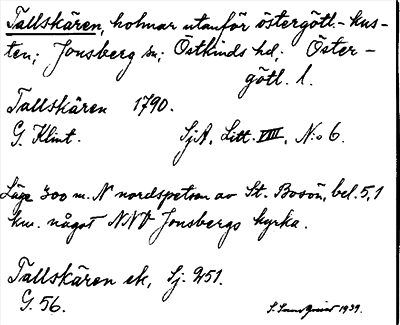 Tallskären, holmar utanför östergötl.-kus-
ten; Jonsberg sn; Östkinds hd, Öster-
götl. l.
Tallskären 1790.
G. Klint. SjA, Litt. VIII, No 6.
Läge 300 m. N nordspetsen av St. Bosön, bel. 5,1
km. något NNV Jonsbergs kyrka.
Tallskären ek, Sj: 251.
G. 56. 1939.